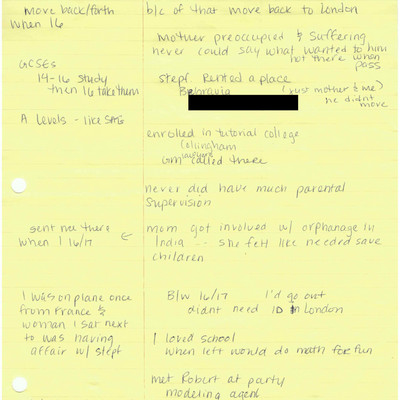 move back/forth
when 16
GCSEs
14-16 study
then 16 take them
A levels - like SATs
sent me there
when I 16/17 ←
I was on plane once
from France &
woman I sat next
to was having
affair w/ stepf
b/c of that move back to London
mother preoccupied & suffering
never could say what wanted to him
not there when
pass
stepf. Rented a place
Belgravia (just mother & me)
he didnt
move
enrolled in tutorial college
Collingham
GM called there
never did have much parental
supervision
mom got involved w/ orphanage in
India - she felt like needed save
children
B/w 16/17 I'd go out
didnt need ID in London
I loved school
when left would do math for fun
met Robert at party
modeling agent